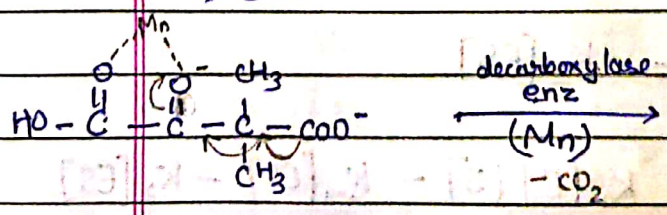 Mn
O O⁻ CH₃
HO - C - C - C - COO⁻
CH₃
decarboxylase
enz
(Mn)
- CO₂